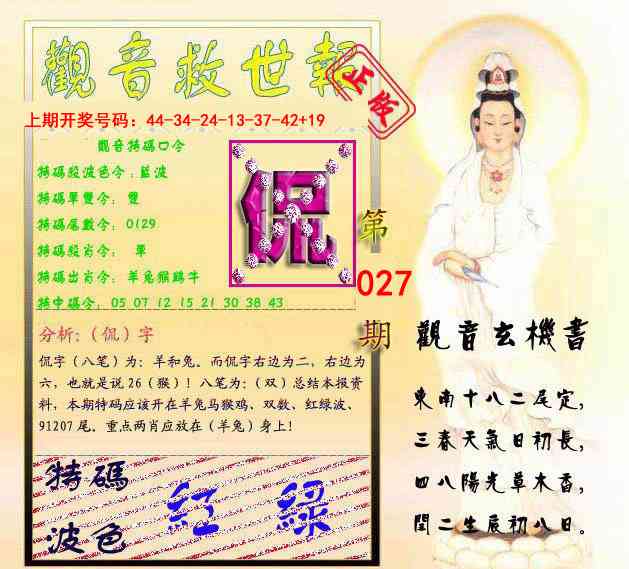 觀音救世報
正版
上期开奖号码：44-34-24-13-37-42+19
觀音特碼口令
特碼段波色令：藍波
特碼單雙令：雙
特碼尾數令：0129
特碼段肖令：單
特碼出肖令：羊兔猴鷄牛
特中碼令：05 07 12 15 21 30 38 43
侃
第
027
期
分析:（侃）字
侃字（八笔）为：羊和兔。而侃字右边为二，右边为
六，也就是说26（猴）！八笔为：（双）总结本报资
料，本期特码应该开在羊兔马猴鸡、双数、红绿波、
91207尾。重点两肖应放在（羊兔）身上！
特碼
波色
紅 綠
觀音玄機書
東南十八二尾定，
三春天氣日初長，
四八陽光草木香，
閏二生辰初八日。